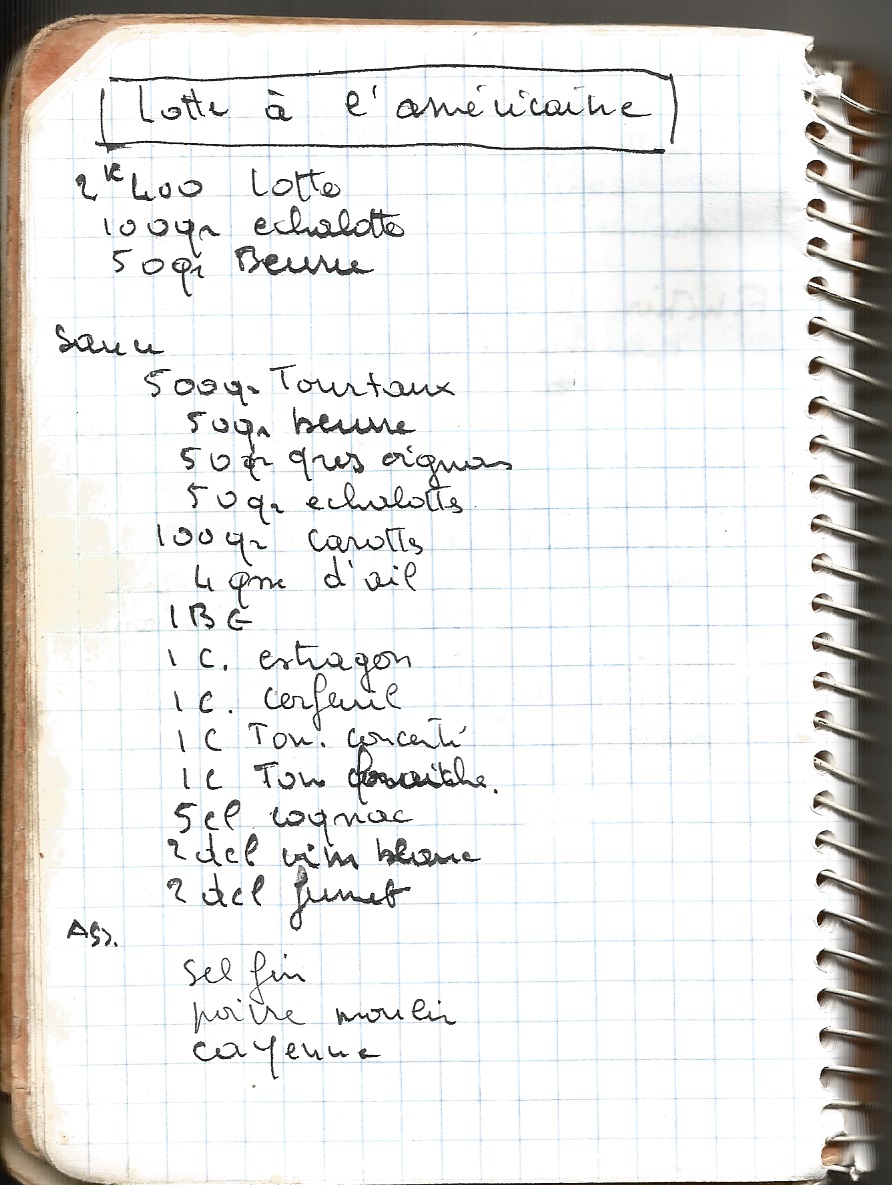 Lotte à l'américaine
2K400 Lotte
100gr echalotte
50gr Beurre
Sauce
500gr Tourtaux
50gr beurre
50gr gros oignons
50gr echalottes
100gr carottes
4 gsse d'ail
1 BG
1 C. estragon
1 C. cerfeuil
1 C Tom. concentré
1C Tom fraiche.
5 cl cognac
2 dcl vin blanc
2 dcl fumet
Ass.
sel fin
poivre moulin
cayenne